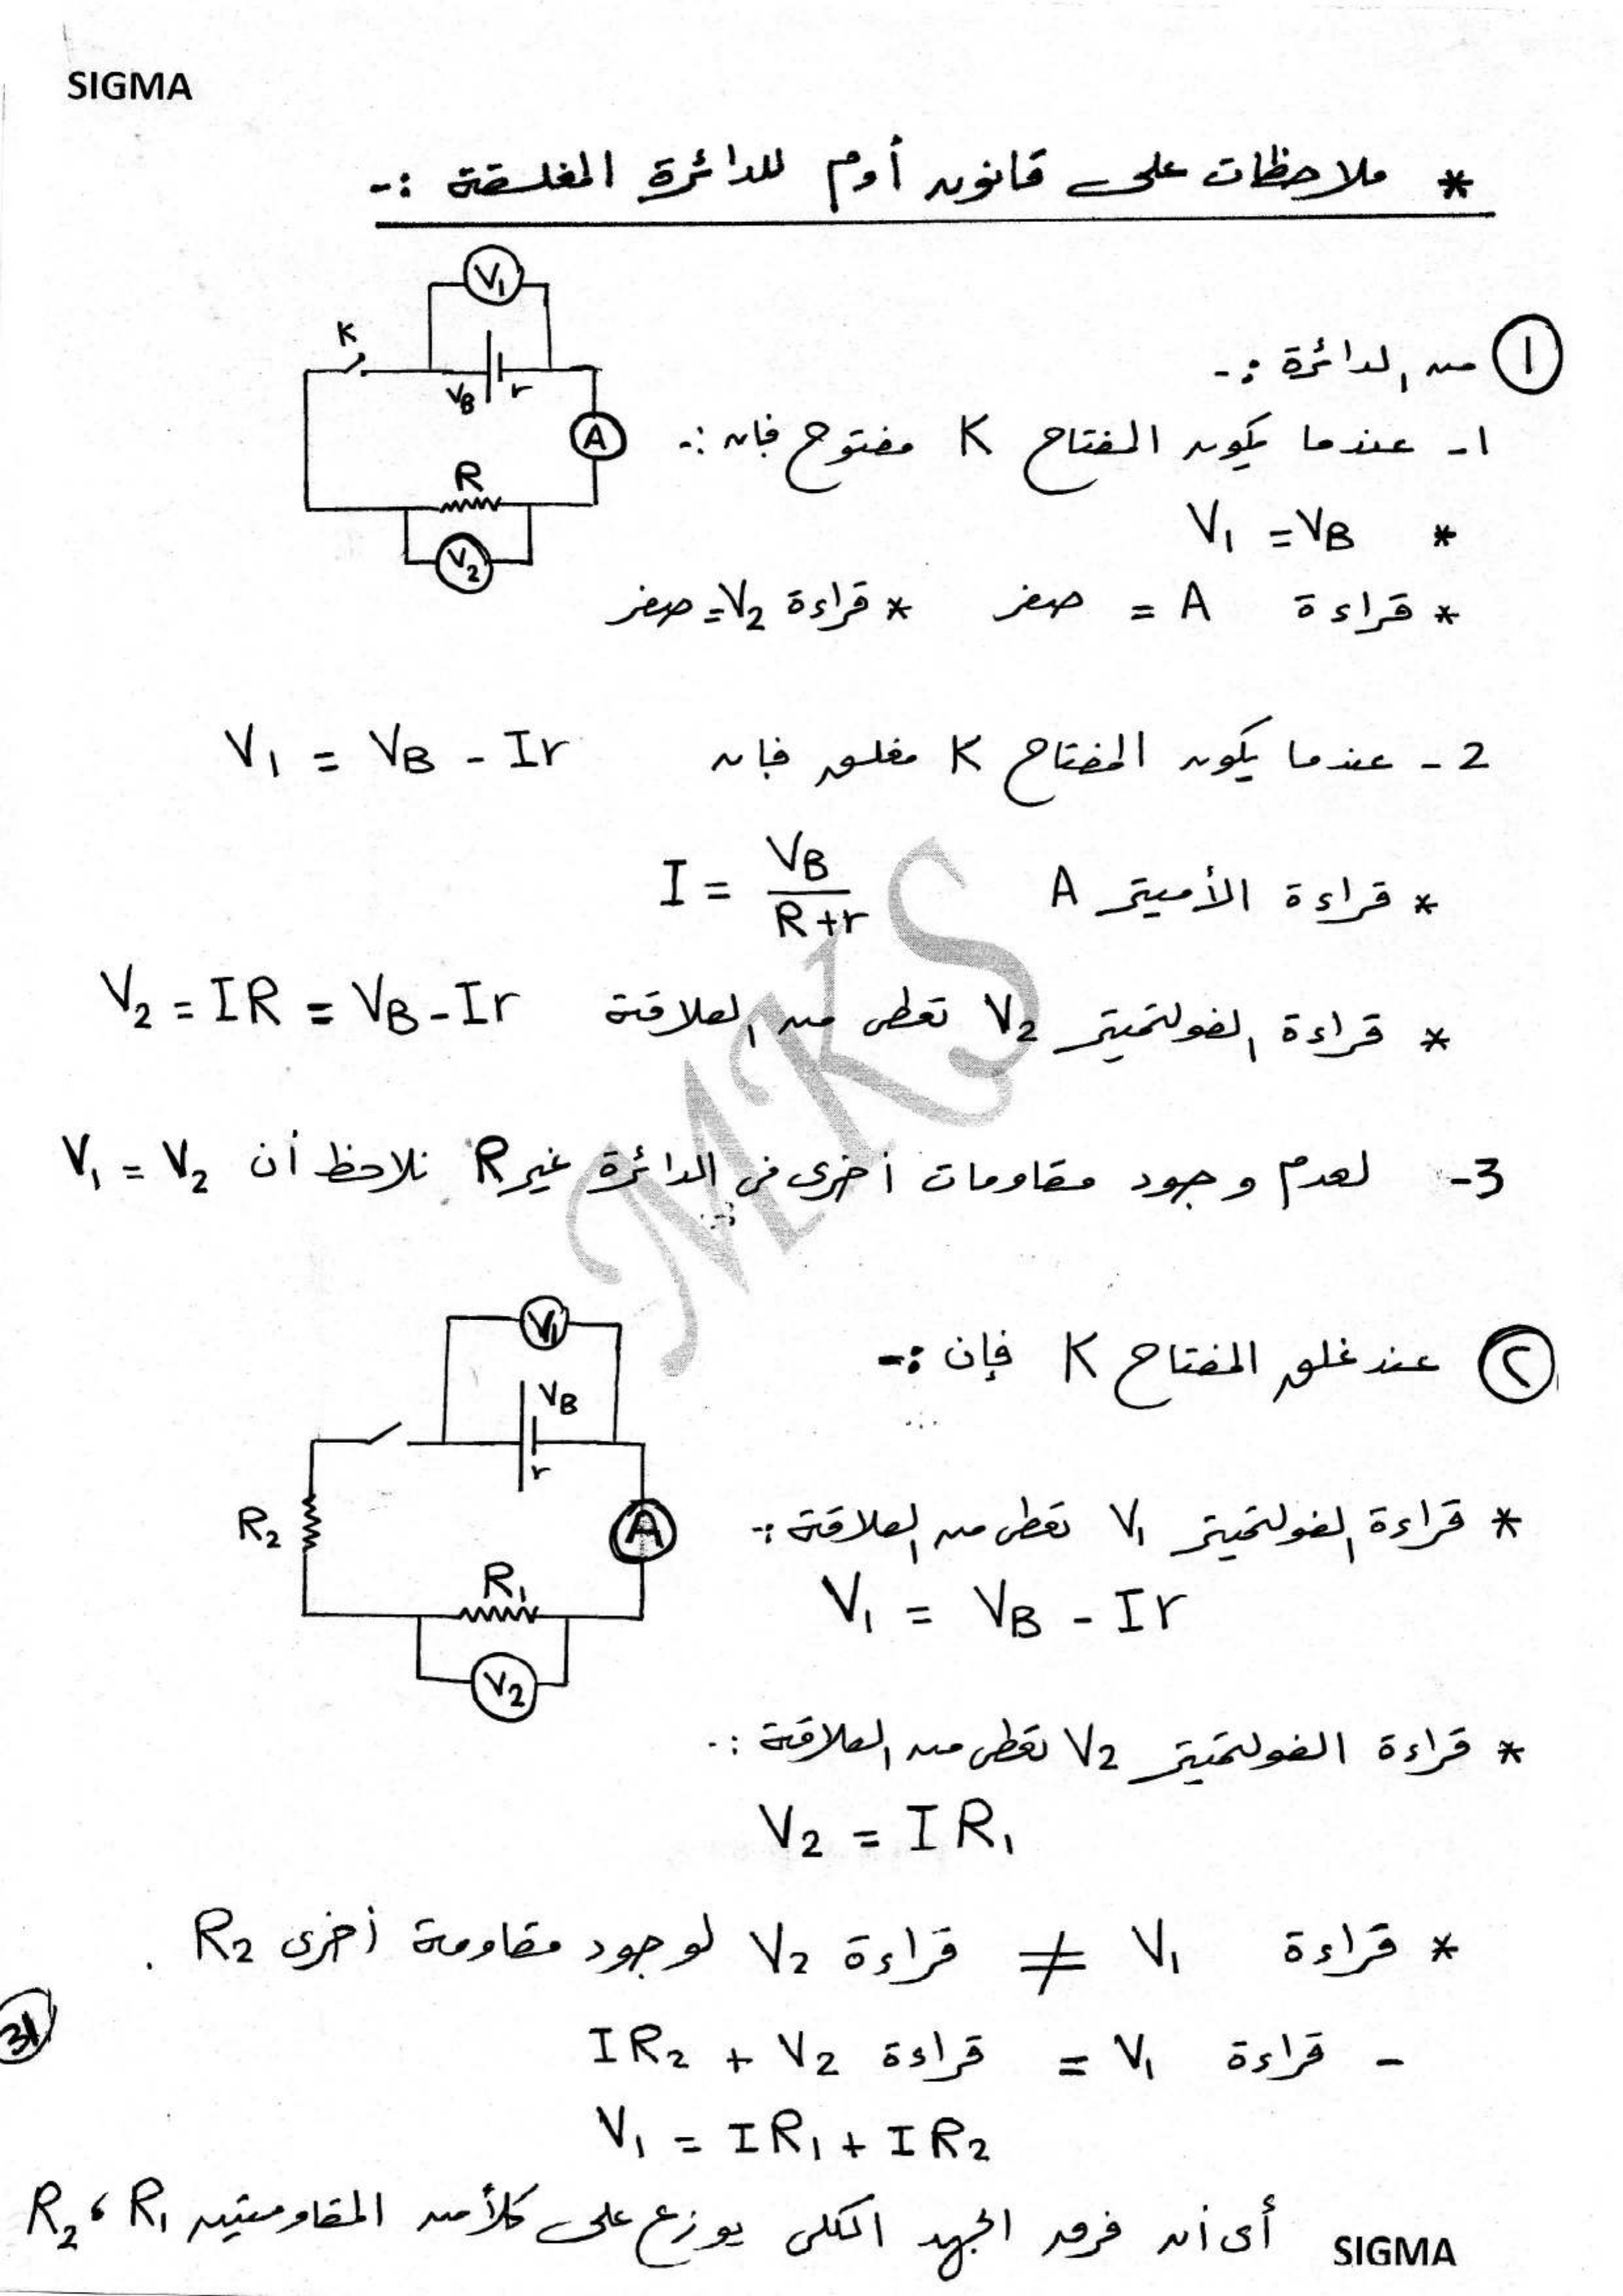 SIGMA
* ملاحظات على قانون أوم للدائرة المغلقة :-
V1
K
VB r
A
R
V2
١ من الدائرة :-
1- عندما يكون المفتاح K مفتوح فإن :-
* V1 = VB
* قراءة A = صفر * قراءة V2 = صفر
2- عندما يكون المفتاح K مغلق فإن V1 = VB - Ir
* قراءة الأميتر A I = VB / R+r
* قراءة الفولتميتر V2 تعطى من العلاقة V2 = IR = VB - Ir
3- لعدم وجود مقاومات أخرى فى الدائرة غير R نلاحظ أن V1 = V2
MKS
٢ عند غلق المفتاح K فإن :-
V1
VB
r
R2
A
R1
V2
* قراءة الفولتميتر V1 تعطى من العلاقة :-
V1 = VB - Ir
* قراءة الفولتميتر V2 تعطى من العلاقة :-
V2 = IR1
* قراءة V1 ≠ قراءة V2 لوجود مقاومة أخرى R2 .
- قراءة V1 = قراءة V2 + IR2
V1 = IR1 + IR2
أى أن فرق الجهد الكلى يوزع على كلاً من المقاومتين R1 ، R2
31
SIGMA